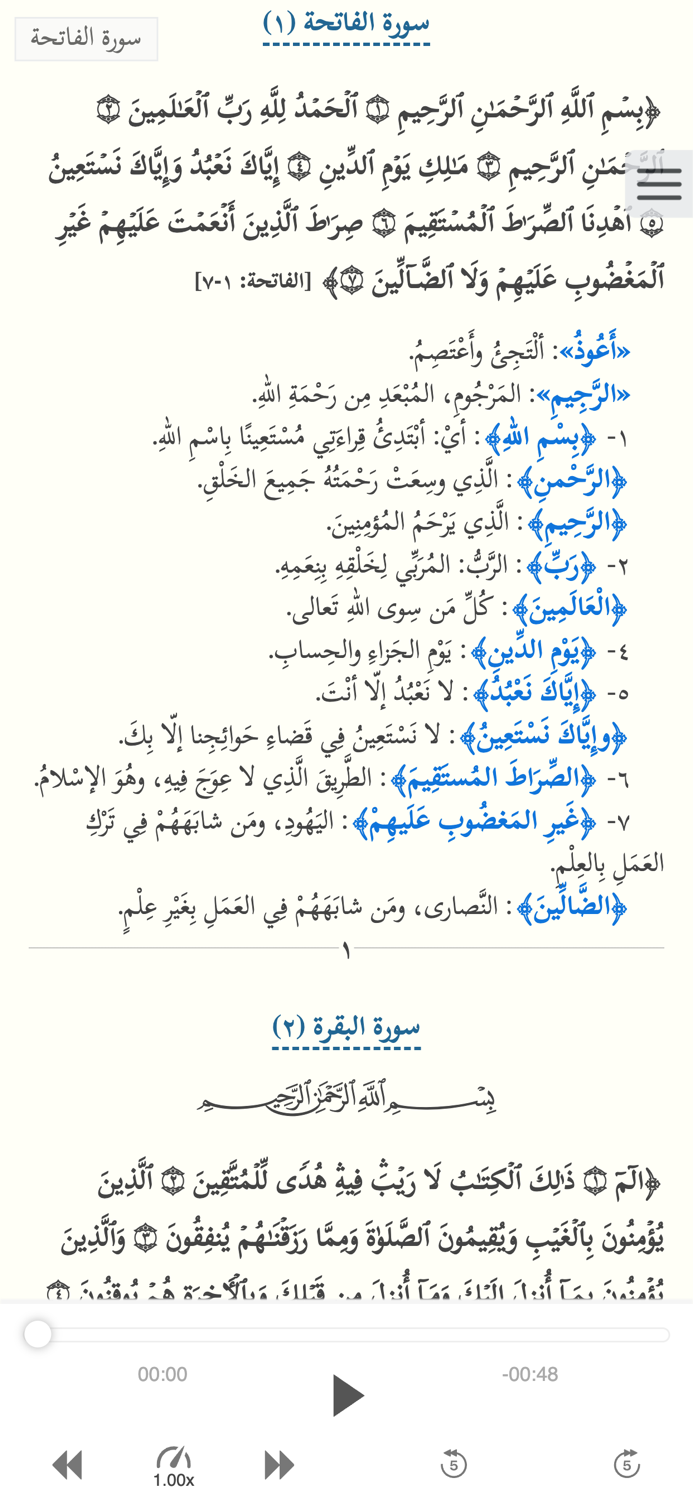 سورة الفاتحة (١)
سورة الفاتحة
﴿بِسۡمِ ٱللَّهِ ٱلرَّحۡمَٰنِ ٱلرَّحِيمِ ١ ٱلۡحَمۡدُ لِلَّهِ رَبِّ ٱلۡعَٰلَمِينَ ٢
ٱلرَّحۡمَٰنِ ٱلرَّحِيمِ ٣ مَٰلِكِ يَوۡمِ ٱلدِّينِ ٤ إِيَّاكَ نَعۡبُدُ وَإِيَّاكَ نَسۡتَعِينُ
٥ ٱهۡدِنَا ٱلصِّرَٰطَ ٱلۡمُسۡتَقِيمَ ٦ صِرَٰطَ ٱلَّذِينَ أَنۡعَمۡتَ عَلَيۡهِمۡ غَيۡرِ
ٱلۡمَغۡضُوبِ عَلَيۡهِمۡ وَلَا ٱلضَّآلِّينَ ٧﴾ [الفاتحة: ١-٧]
«أَعُوذُ»: ألْتَجِئُ وأَعْتَصِمُ.
«الرَّجِيمِ»: المَرْجُومِ، المُبْعَدِ مِن رَحْمَةِ اللهِ.
١- ﴿بِسْمِ اللهِ﴾: أيْ: أبْتَدِئُ قِراءَتِي مُسْتَعِينًا بِاسْمِ اللهِ.
﴿الرَّحْمنِ﴾: الَّذِي وسِعَتْ رَحْمَتُهُ جَمِيعَ الخَلْقِ.
﴿الرَّحِيمِ﴾: الَّذِي يَرْحَمُ المُؤمِنِينَ.
٢- ﴿رَبِّ﴾: الرَّبُّ: المُرَبِّي لِخَلْقِهِ بِنِعَمِهِ.
﴿الْعَالَمِينَ﴾: كُلِّ مَن سِوى اللهِ تَعالى.
٤- ﴿يَوْمِ الدِّينِ﴾: يَوْمِ الجَزاءِ والحِسابِ.
٥- ﴿إِيَّاكَ نَعْبُدُ﴾: لا نَعْبُدُ إلّا أنْتَ.
﴿وإِيَّاكَ نَسْتَعِينُ﴾: لا نَسْتَعِينُ فِي قَضاءِ حَوائِجِنا إلّا بِكَ.
٦- ﴿الصِّرَاطَ المُستَقِيمَ﴾: الطَّرِيقَ الَّذِي لا عِوَجَ فِيهِ، وهُوَ الإسْلامُ.
٧- ﴿غَيرِ المَغضُوبِ عَلَيهِمْ﴾: اليَهُودِ، ومَن شابَهَهُمْ فِي تَرْكِ
العَمَلِ بِالعِلْمِ.
﴿الضَّالِّينَ﴾: النَّصارى، ومَن شابَهَهُمْ فِي العَمَلِ بِغَيْرِ عِلْمٍ.
١
سورة البقرة (٢)
بِسۡمِ ٱللَّهِ ٱلرَّحۡمَٰنِ ٱلرَّحِيمِ
﴿الٓمٓ ١ ذَٰلِكَ ٱلۡكِتَٰبُ لَا رَيۡبَۛ فِيهِۛ هُدٗى لِّلۡمُتَّقِينَ ٢ ٱلَّذِينَ
يُؤۡمِنُونَ بِٱلۡغَيۡبِ وَيُقِيمُونَ ٱلصَّلَوٰةَ وَمِمَّا رَزَقۡنَٰهُمۡ يُنفِقُونَ ٣ وَٱلَّذِينَ
يُؤۡمِنُونَ بِمَآ أُنزِلَ إِلَيۡكَ وَمَآ أُنزِلَ مِن قَبۡلِكَ وَبِٱلۡأٓخِرَةِ هُمۡ يُوقِنُونَ ٤
00:00
-00:48
1.00x
5
5